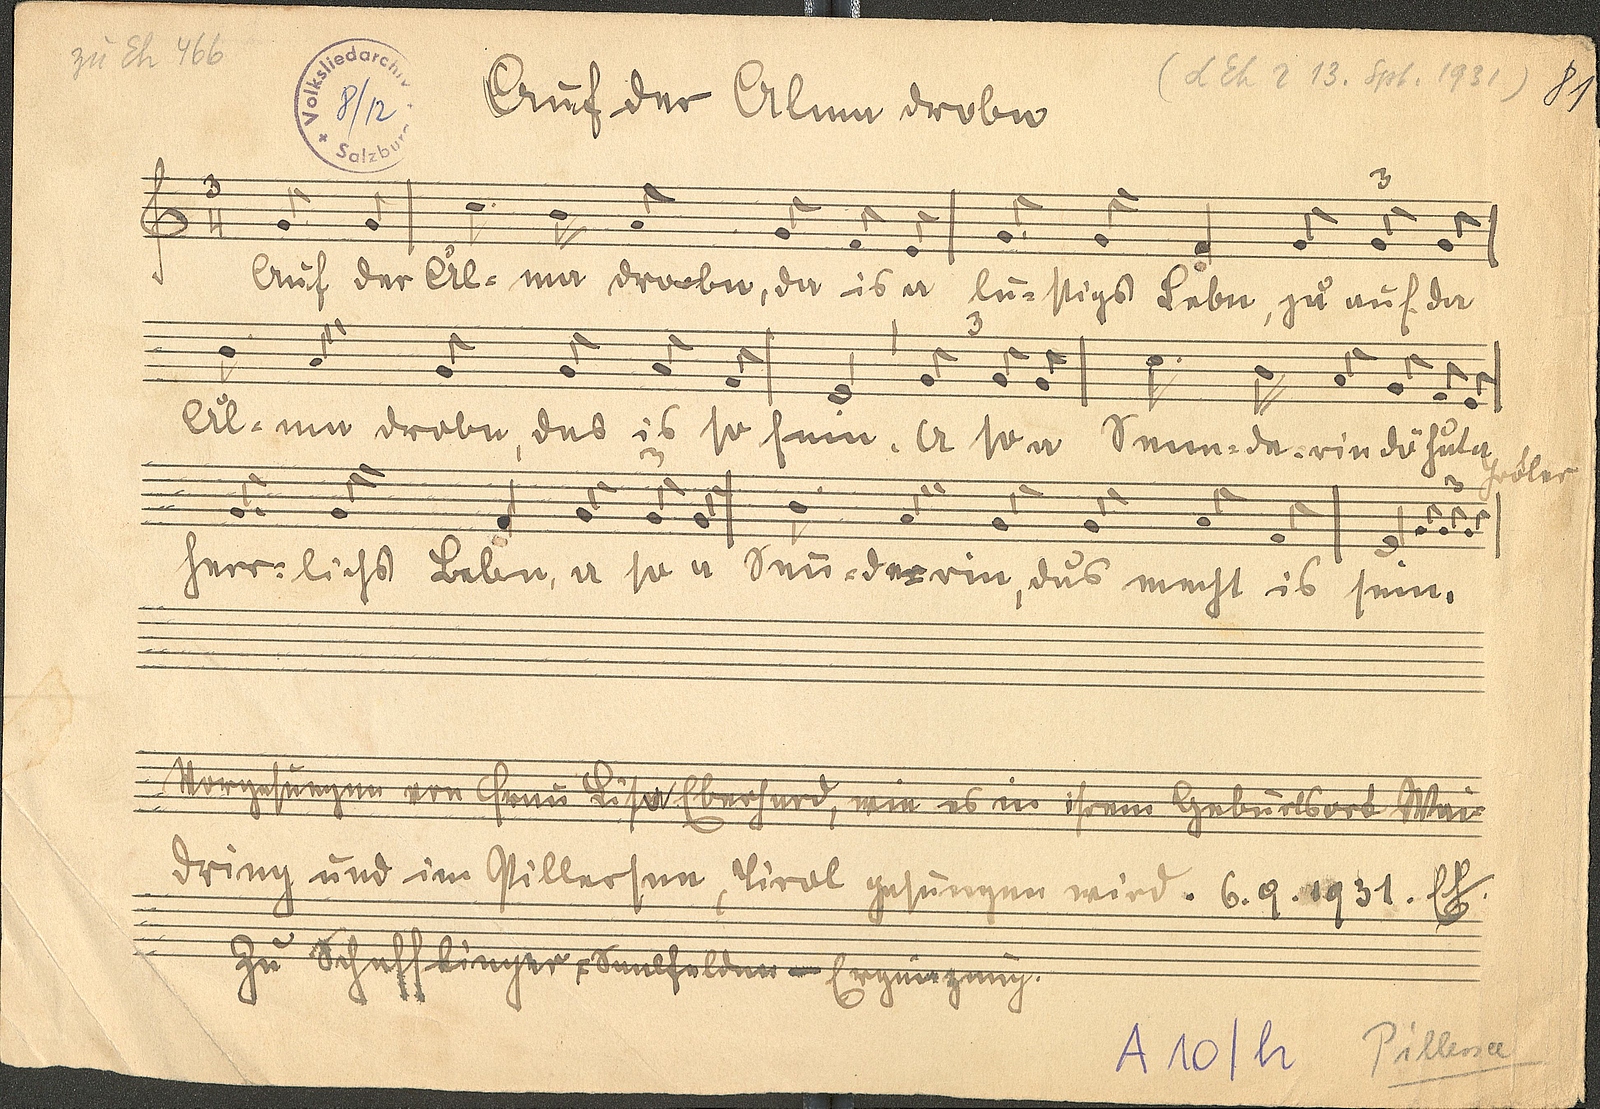 zu Eh 466
Volksliedarchiv
8/12
Salzburg
Auf der Alma drobn
13. Spt. 1931)
81
3
3
Auf der Ål- ma droobn, da is a lu-stigs Lebn, zu auf da
3
Ål- ma drobn, des is so fein. A so a Senn-de-rin dö hut a
3
3
herr-lichs Lebn, a so a Senn-derin, dus mecht is sein.
Vorgesungen von Frau Lisa Eberhard, wie es in ihrem Geburtsort Wai-
dring und im Pillersee, Tirol gesungen wird. 6.9.1931. Eh.
Zu Schafflinger, Saalfelden – Ergänzung.
A 10/h
Pillersee